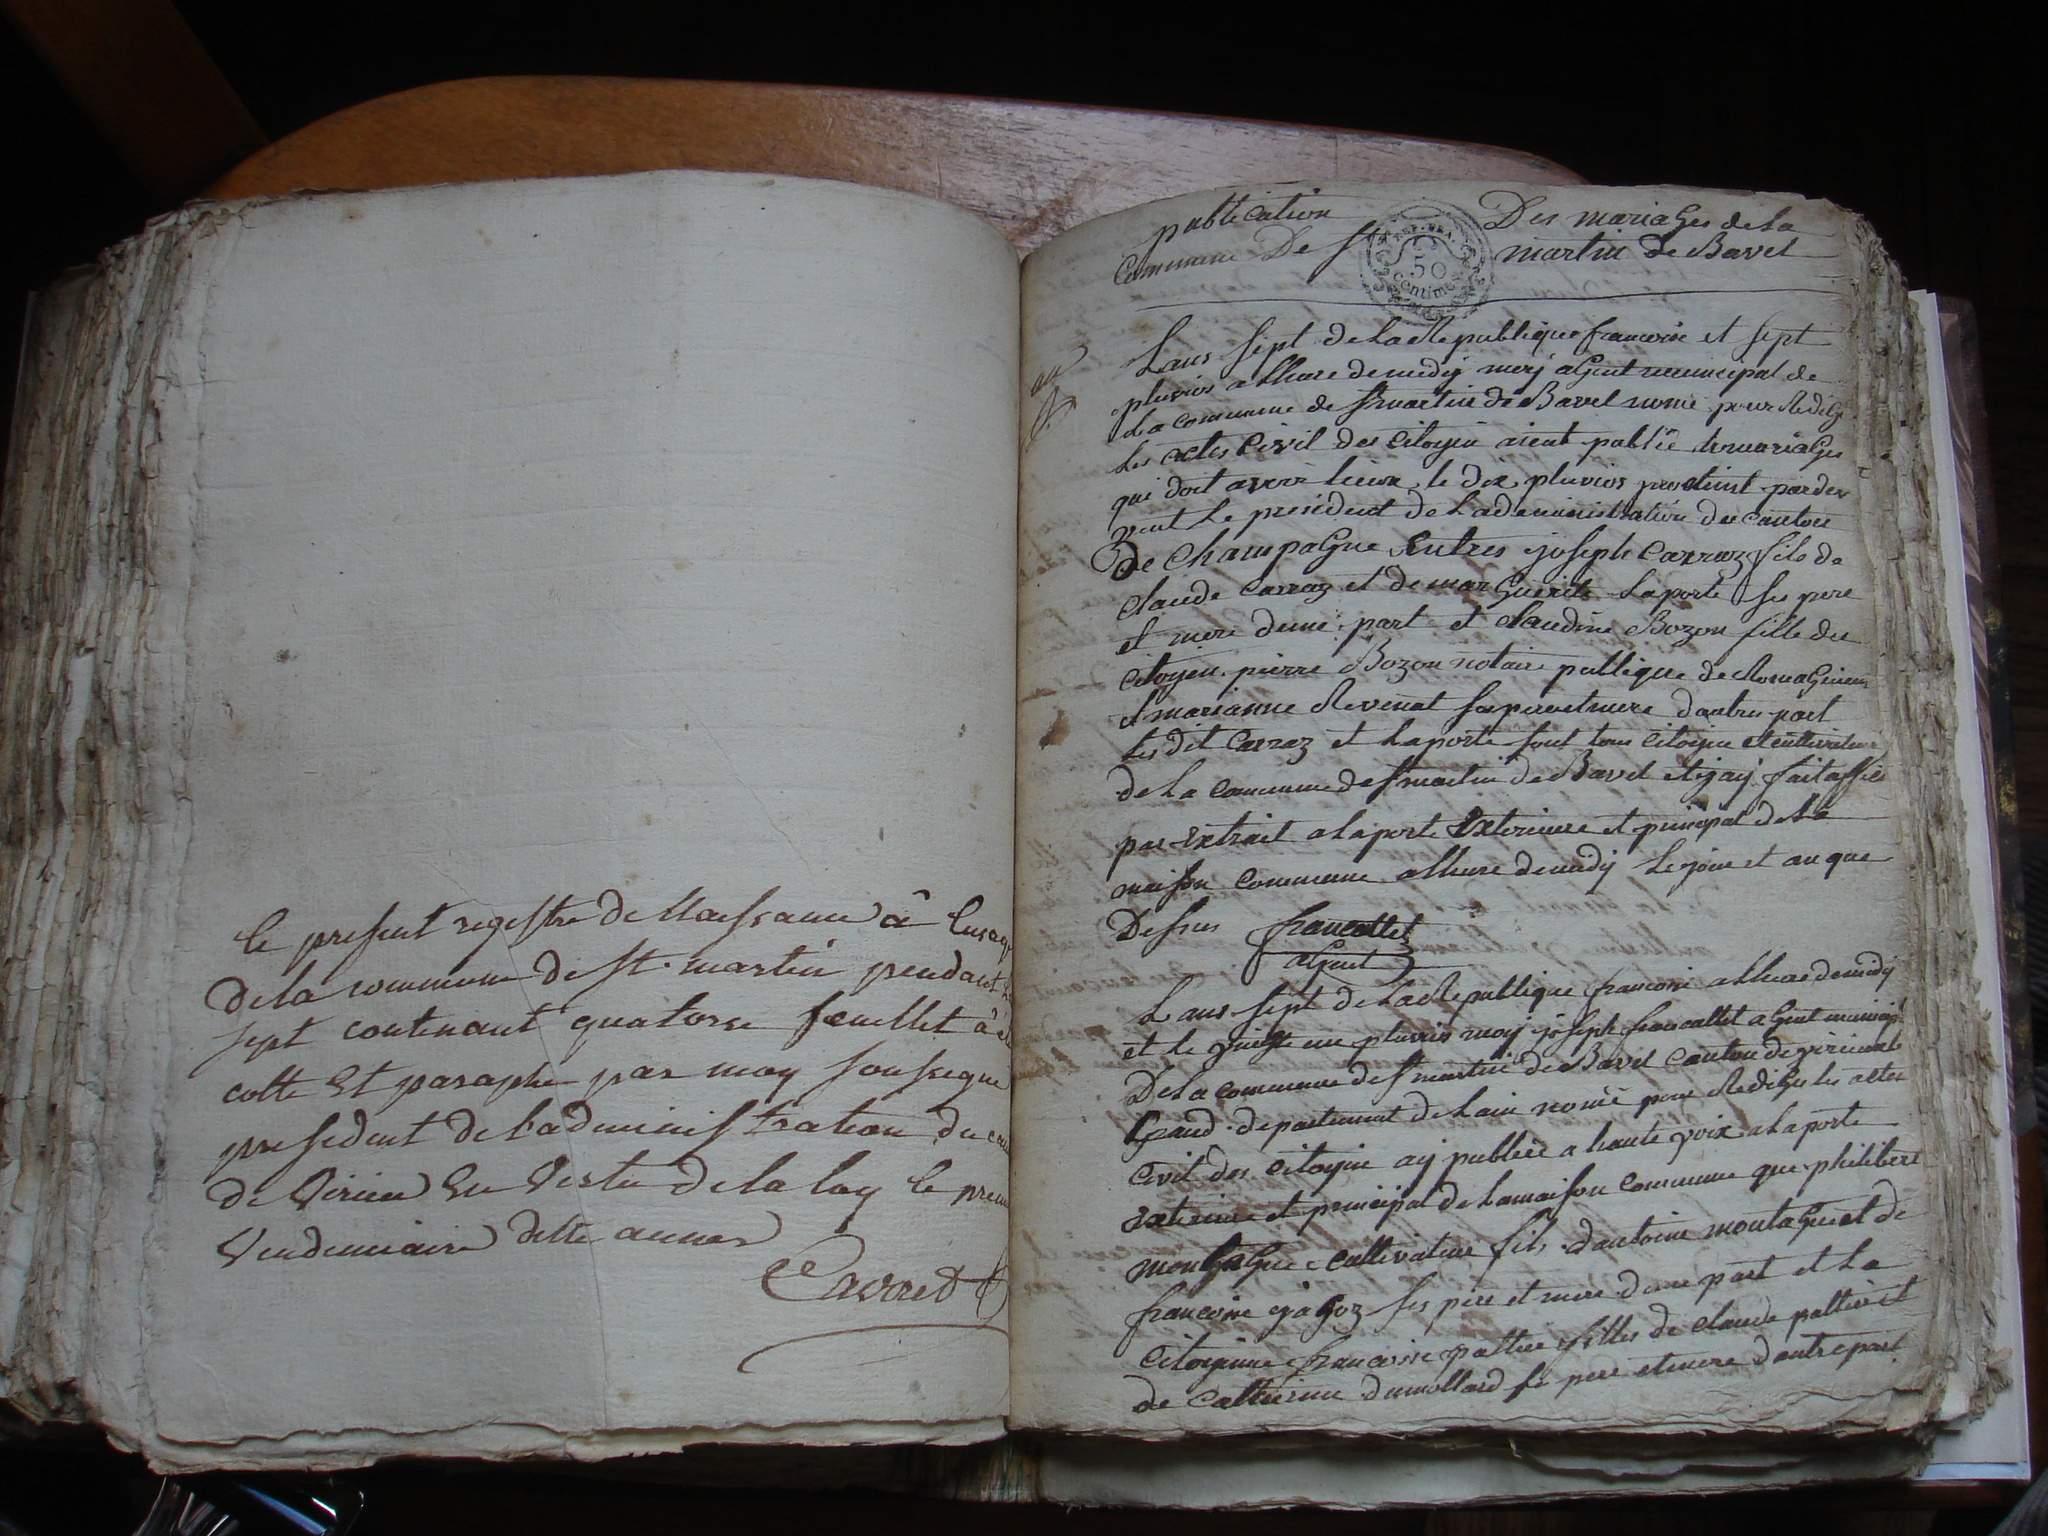 le present registre de Naissance â Lusage
de la commune de St. martin pendant
sept contenant quatorse feuillet â
cotte Et paraphe par moy soussegne
president de l'administration du can
de Virieu En Vertu de la loy le premi
Vendemiaire ditte annee
Cavoret
publication Des mariages de La
Commune De St martin de Bavel
REP. FRA.
50
centimes
Lans sept de La Republique francoise et sept
pluvios a lheure de midy moij agent municipal de
La commune de St martin de Bavel nomé pour Redige
Les actes Civil des Citoyin aient publiè le mariage
qui doit avoir lieux le dix pluvios prochint parde
vent Le president de Ladministration du canton
de Champagne Entres joseph Carraz fils de
Claude Carraz et de marguerite Laporte ses pere
et mere dune part et Claudine Bozon fille du
Citoyen pierre Bozon notaire publique de Romagnieu
et marianne Revenat ses pere et mere dautres part
les dit Carraz et Laporte sont tous Citoyin et cultivateur
de La commune de St martin de Bavel et ij aij fait affiche
par Extrait a la porte Exterieure et principal de La
maison commune a lheure de midij Le jour et an que
Dessus francallet
agent
Lans sept de La Republique francoise a lheure de midij
et le vingt un pluvios moij joseph francallet agent municipal
De La commune de St martin de Bavel Canton de virieu le
Grand departement de Lain nomé pour Rediger les actes
Civil des Citoyin aij publièe a haute voix a La porte
Exterieure et principal de La maison commune que philibert
montagne cultivateur fils dantoine montagne et de
francoise jagoz ses pere et mere dune part et La
Citoyinne francoise pattier filles de Claude pattier et
de Catherine dumollard se pere et mere dautre part